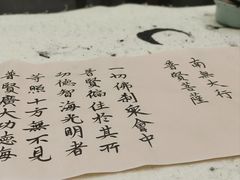 南無大行
普賢菩薩
一切佛刹眾會中
普賢徧住於其所
功德智海光明者
等照十方無不見
普賢廣大功德海